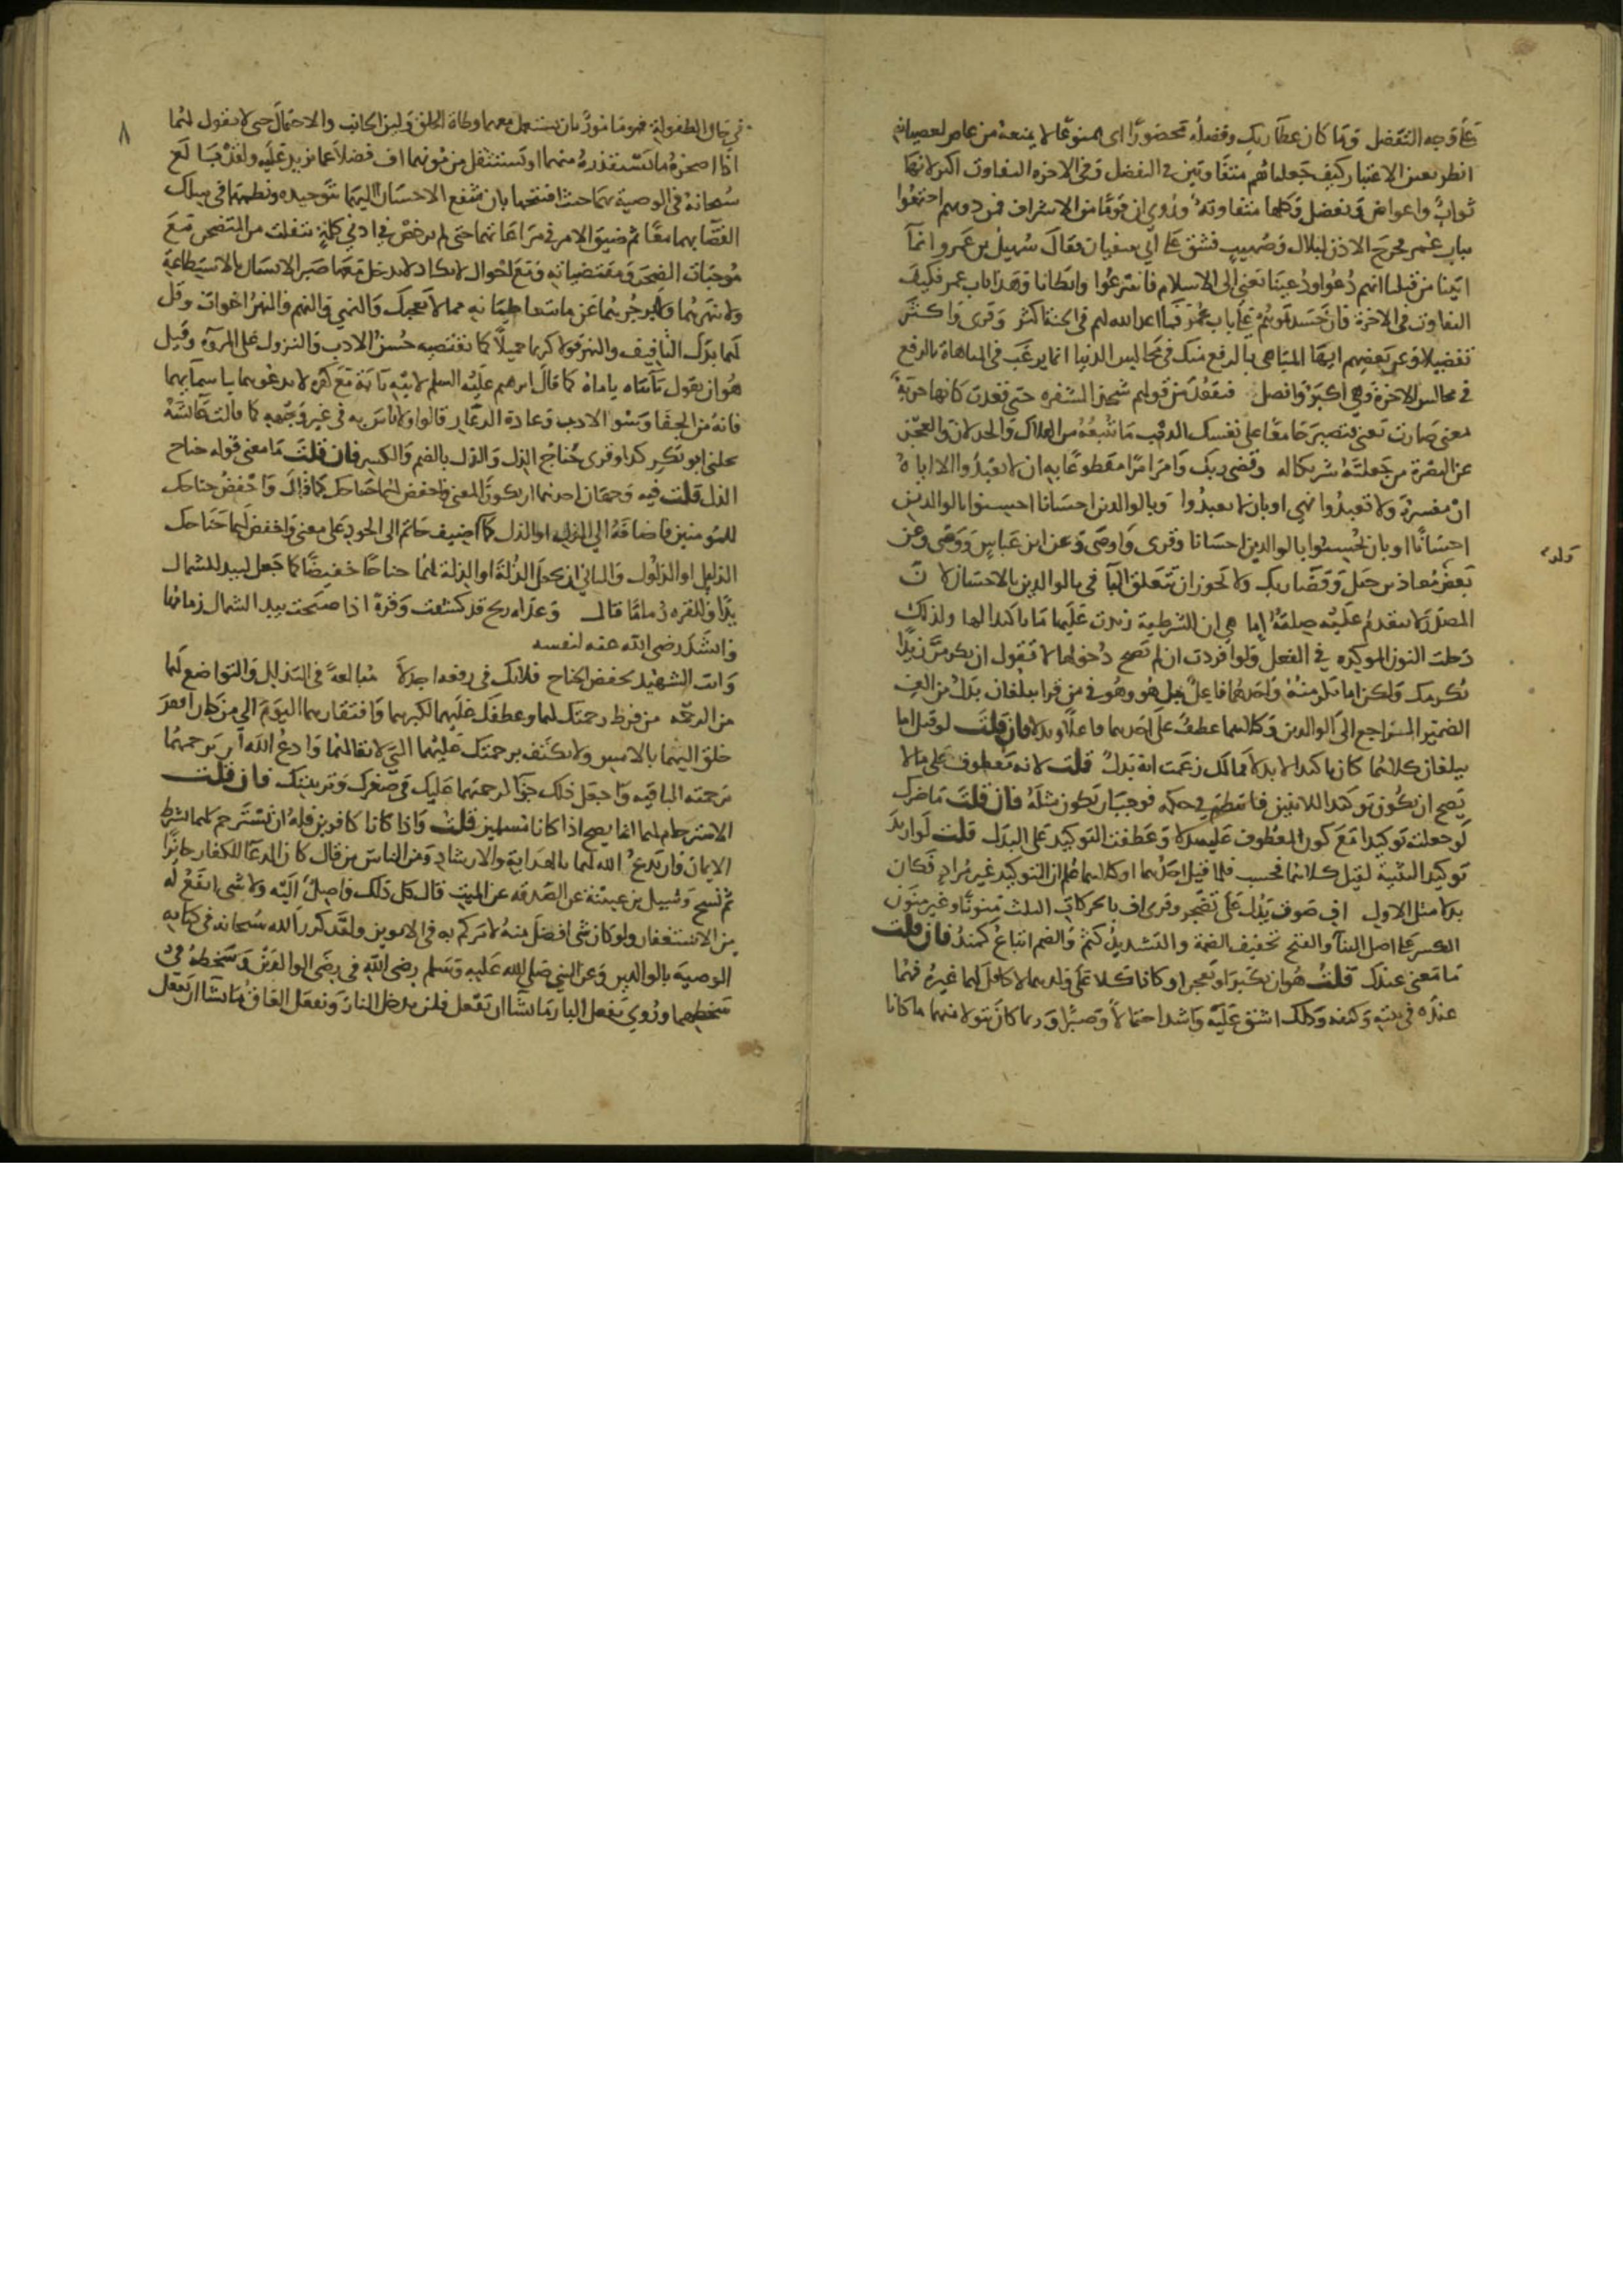 على وجه التفضل وما كان عطا ربك وفضله محضورًا اى ممنوعًا لا يمنعه من عاص لعصيانه
انظر بعين الاعتبار كيف جعلناهم متفاوتين في التفضل وفي الاخرة التفاوت اكبر لانها
ثواب واعواض وتفضل وكلها متفاوتة وروى ان قومًا من الاشراف فمن دونهم اجتمعوا
بباب عمر فخرج الاذن لبلال وصهيب فشق على ابي سفيان فقال سهيل بن عمرو انما
اتينا من قبلنا انهم دعوا ودعينا يعني الى الاسلام فاسرعوا وابطانا وهذا باب عمر فكيف
التفاوت في الاخرة فان حسدتموهم على باب عمر فما اعد الله لهم في الجنة اكثر وقرى واكثر
تفضيلا وعن بعضهم ايها المباهي بالرفع منك في مجالس الدنيا اما يرغب في المباهاة بالرفع
في مجالس الاخرة وهي اكبر وافضل فتقعد من قولهم شحذ الشفره حتى قعدت كانها حربة
بمعنى صارت يعني فتصير جامعًا على نفسك الذم وما يتبعه من الهلاك والخذلان والعجز
عن النصرة من جعلته شريكا له وقضى ربك وامر امرًا مقطوعًا به ان لا تعبدوا الا اياه
ان مفسرة ولا تعبدوا نهي او بان لا تعبدوا وبالوالدين احسانا احسنوا بالوالدين
احسانًا او بان تحسنوا بالوالدين احسانا وقرى واوصى وعن ابن عباس ووصى وعن
ولد
بعض معاذ بن جبل وقضا ربك ولا يجوز ان تتعلق البا في بالوالدين بالاحسان لان
المصدر لا يتقدم عليه صلته اما هي ان الشرطية زيدت عليها ما تاكيدا لها ولذلك
دخلت النون الموكدة في الفعل ولو افردت ان لم تصح دخولها لا تقول ان يكرمن زيدًا
يكرمك ولكن اما تكرمنه واحدهما فاعل يبلغن وهو في من قرا يبلغان بدل من الف
الضمير الراجع الى الوالدين وكلاهما عطف على احدهما فاعلا وبدلا فان قلت لو قيل اما
يبلغان كلاهما كان تاكيدا لا بدلا فما لك زعمت انه بدل قلت لانه معطوف على ما لا
يصح ان يكون توكيدا للاثنين فانتظم في حكمه فوجب ان يكون مثله فان قلت ما ضرك
لو جعلته توكيدا مع كون المعطوف عليه بدلا وعطفت التوكيد على البدل قلت لو اريد
توكيد التثنية لقيل كلاهما فحسب فلما قيل احدهما او كلاهما علم ان التوكيد غير مراد فكان
بدلا مثل الاول اف صوت يدل على تضجر وقرى اف بالحركات الثلث منونًا وغير منون
الكسر على اصل البناء والفتح تخفيف الضمة والتشديد كثم والضم اتباع كمنذ فان قلت
ما معنى عندك قلت هو ان يكبرا ويعجزا وكانا كلا على ولدهما لا كافل لهما غيره فهما
عنده في بيته وكنفه وذلك اشق عليه واشد احتمالاً وصبرًا وربما كان يتولا منهما ما كانا
٨
في حال الطفولية فهو مامور بان يستعمل معهما وطاة الخلق ولين الجانب والاحتمال حتى لا يقول لهما
اذا اضجره ما يستقذره منهما او يستثقل من مونهما اف فضلا عما يزيد عليه ولقد بالغ
سبحانه في الوصية بهما حيث افتتحها بان شفع الاحسان اليهما بتوحيده ونظمهما في سلك
القضا بهما معًا ثم ضيق الامر في مراعاتهما حتى لم يرخص في ادنى كلمة تنفلت من المتضجر مع
موجبات الضجر ومقتضياته ومع احوال لا يكاد لا يدخل معها صبر الانسان بالاستطاعة
ولا تنهرهما ولا تزجرهما عن ما يتعاطيانه مما لا يعجبك والنهي والنهم والنهر اخوات وقل
لهما بدل التافيف والنهر قولا كريما جميلاً كما يقتضيه حسن الادب والنزول على المروة وقيل
هو ان يقول يا ابتاه يا اماه كما قال ابرهيم عليه السلم لابيه يا ابه مع كفره لا يدعوهما باسمايهما
فانه من الجفا وسو الادب وعادة الدعار قالوا ولا باس به في غير وجهه كما قالت عايشة
نحلني ابو بكر كذا وقرى جناح الذل والذل بالضم والكسر فان قلت ما معنى قوله جناح
الذل قلت فيه وجهان احدهما ان يكون المعنى واخفض لهما جناحك كما قال واخفض جناحك
للمومنين فاضافه الى الذل او الذل كما اضيف حاتم الى الجود على معنى واخفض لهما جناحك
الذليل او الذلول والثاني ان يجعل الذله او الذلة لهما جناحًا خفيضًا كما جعل لبيد للشمال
يدًا وللقره زمامًا قال وغداه ريح قد كشفت وقرة اذا صبحت بيد الشمال زمامها
وانشد رضي الله عنه لنفسه
وانت الشهير بخفض الجناح فلا تك في رفعه اجدلا مبالغة في التذلل والتواضع لهما
من الرحمه من فرط رحمتك لهما وعطفك عليهما لكبرهما وافتقارهما اليوم الى من كان افقر
خلق اليهما بالامس ولا تكتف برحمتك عليهما التي لا بقا لها وادع الله ان يرحمهما
رحمته الباقيه واجعل ذلك جزآ لرحمتهما عليك في صغرك وتربيتك فان قلت
الاسترحام لهما انما يصح اذا كانا مسلمين قلت واذا كانا كافرين فله ان يسترحم لهما بشرط
الايمان وان يدعو الله لهما بالهداية والارشاد ومن الناس من قال كان الدعا للكفار جائزًا
ثم نسخ وسيل بن عيينة عن الصدقه عن الميت قال كل ذلك واصل اليه ولا شي انفع له
من الاستغفار ولو كان شي افضل منه لامركم به في الابوين ولقد كرر الله سبحانه في كتابه
الوصية بالوالدين وعن النبي صلى الله عليه وسلم رضى الله في رضى الوالدين وسخطه في
سخطهما وروى يفعل البار ما يشا ان يفعل فلن يدخل النار ويفعل العاق ما يشا ان يفعل